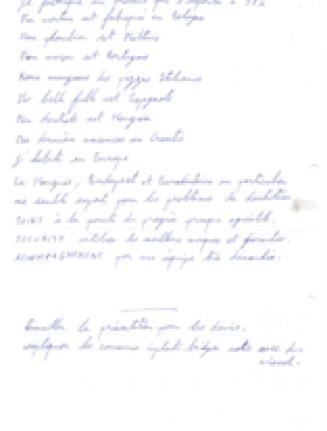 Je fabrique un produit que j'exporte à 95%
Ma voiture est fabriquée en Pologne
Mon plombier est Maltais
Mon maçon est Portugais
Nous mangeons des pizzas Italiennes
Ma belle fille est Espagnole
Mon dentiste est Hongrois
Mes dernières vacances en Croatie
J'habite en Europe
La Hongrie, Budapest et Eurodentaire en particulier
me semble expert pour les problèmes de dentition
SOINS à la pointe du progrès presque agréable.
SECURITE utiliser les meilleurs marques et garanties.
ACCOMPAGNEMENT par une équipe très
travailler la présentation pour les devis.
expliquer les couronnes implants bridges
visuel.